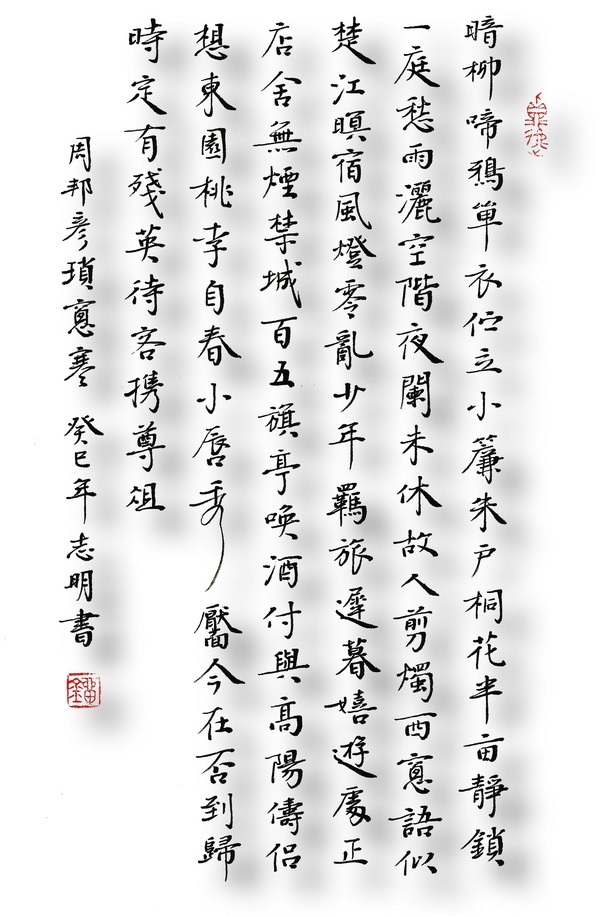 暗柳啼鴉單衣佇立小簾朱戶桐花半亩靜鎖
一庭愁雨灑空階夜闌未休故人剪燭西窻語似
楚江暝宿風燈零亂少年羈旅遲暮嬉遊處正
店舍無煙禁城百五旗亭喚酒付與高陽儔侶
想東園桃李自春小唇秀靨今在否到歸
時定有殘英待客携尊俎
周邦彥瑣窻寒 癸巳年志明書